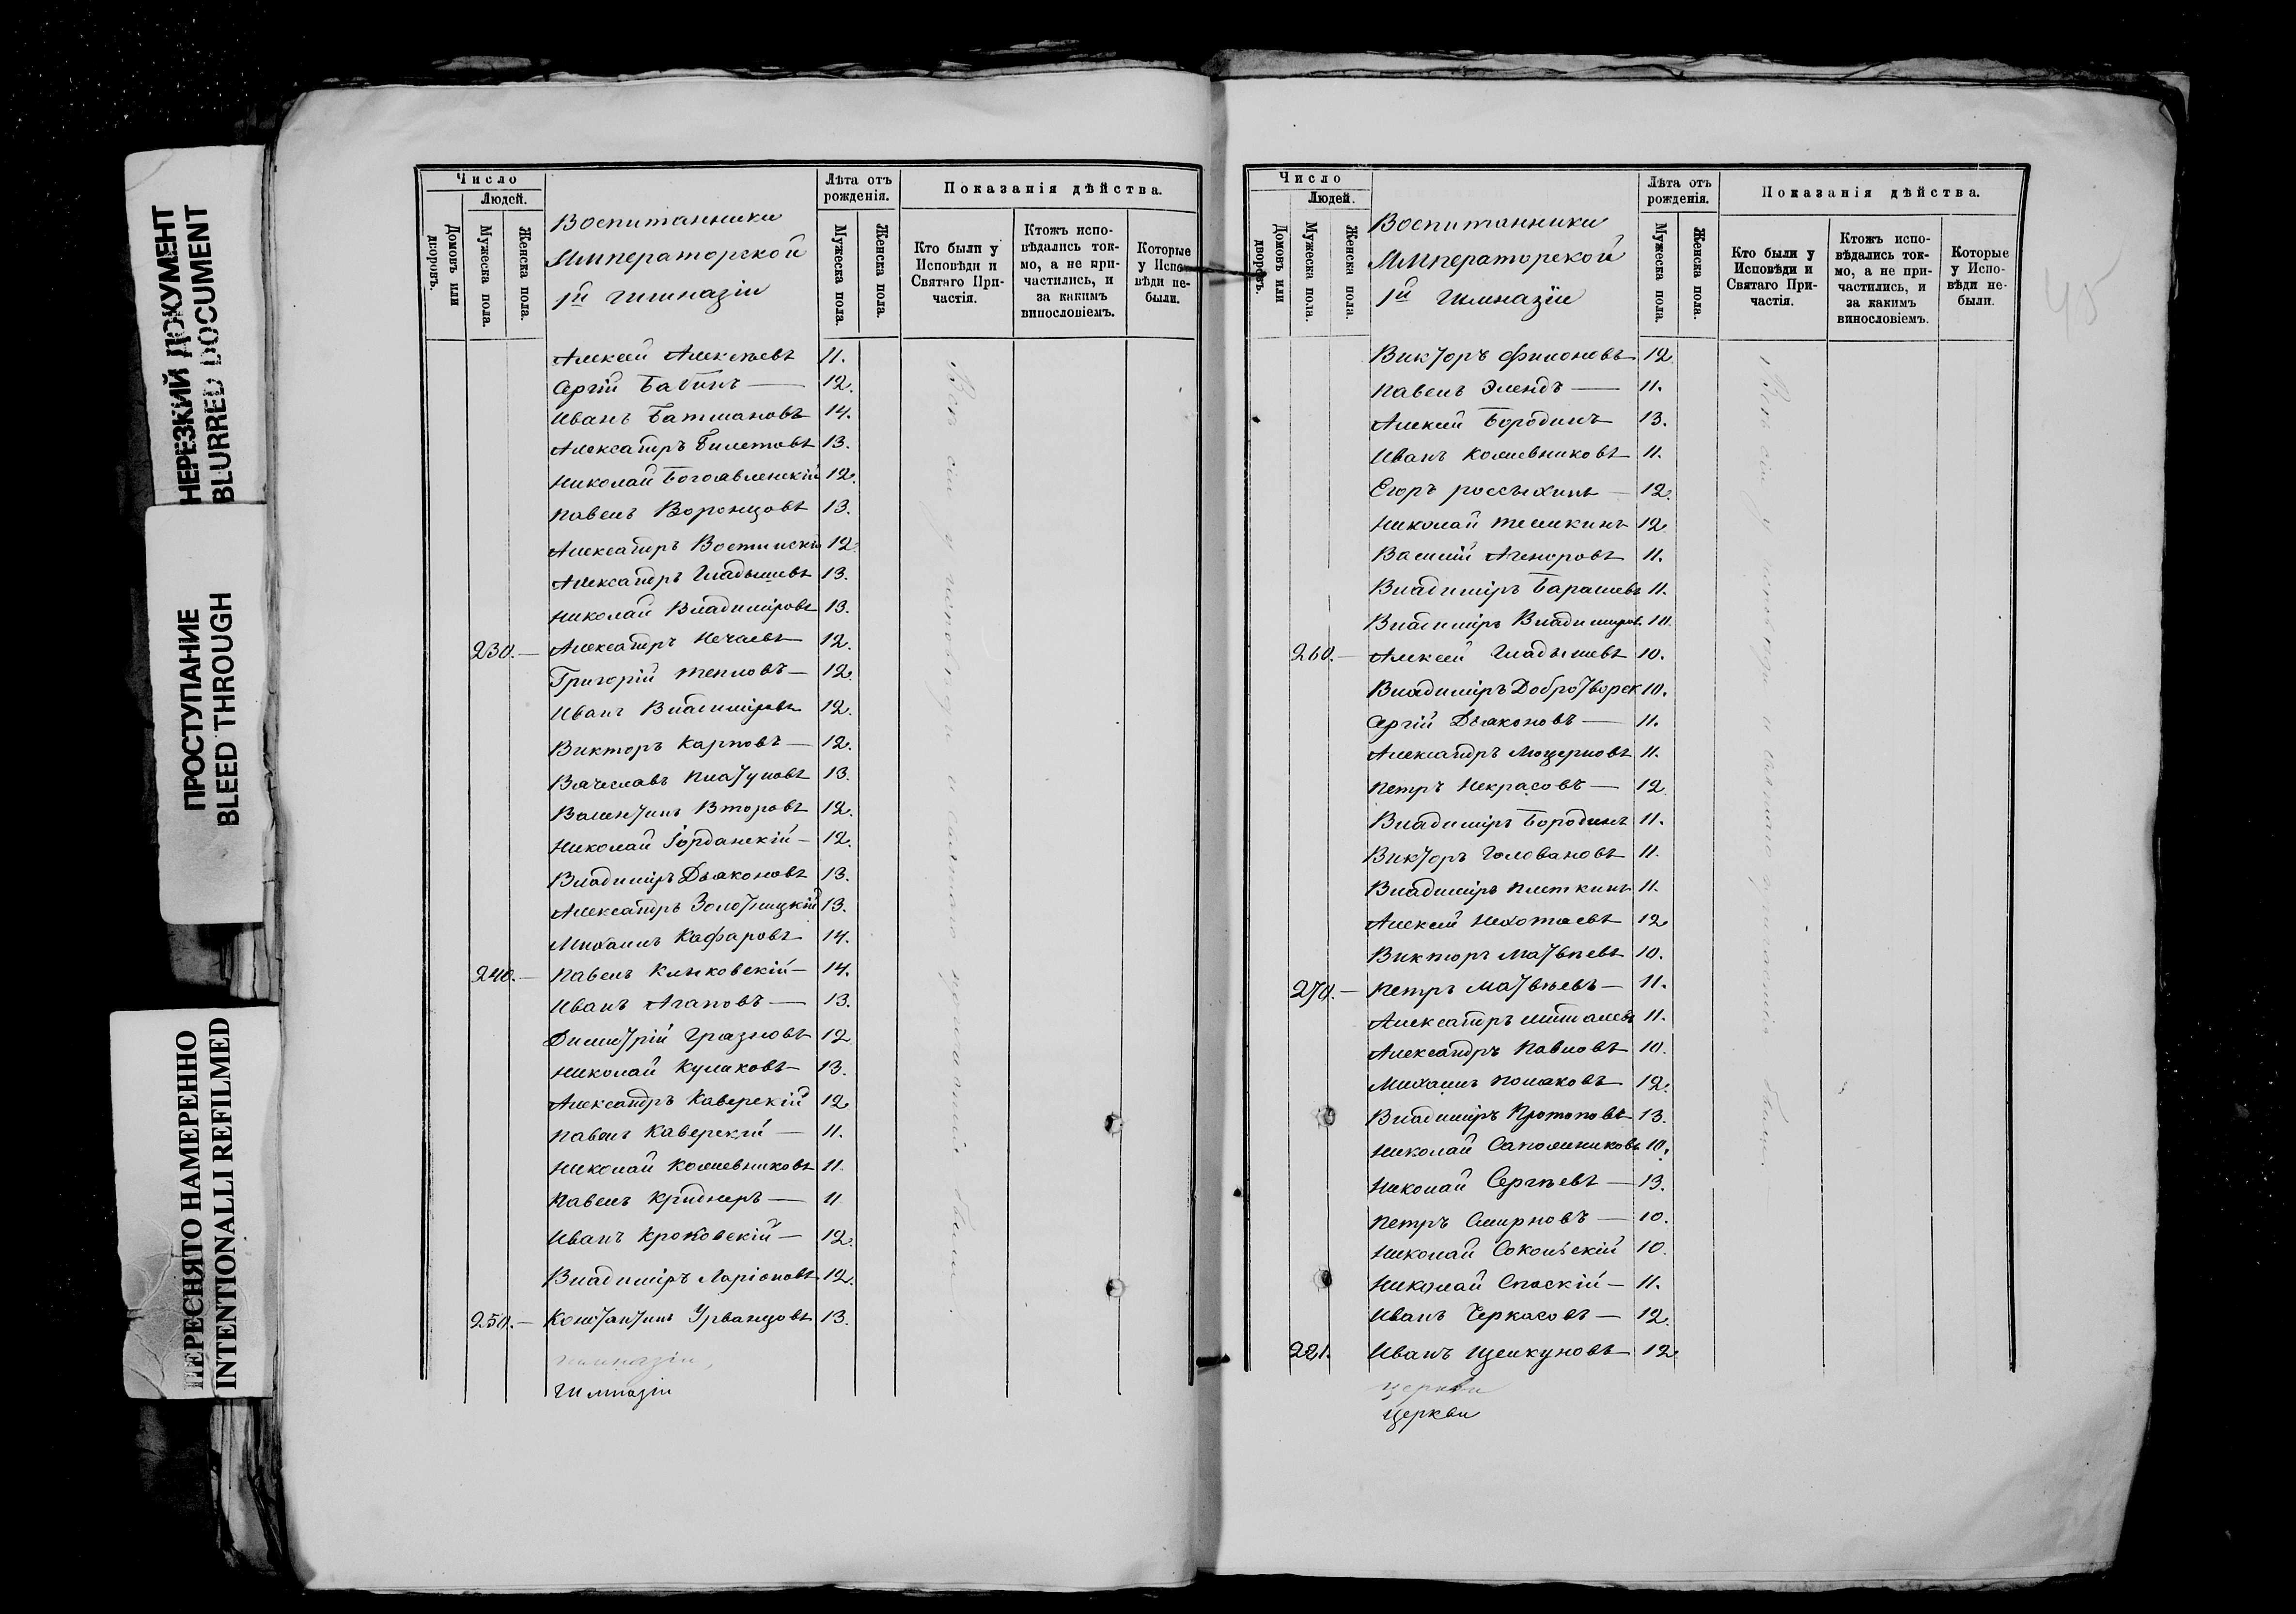 НЕРЕЗКИЙ ДОКУМЕНТ
BLURRED DOCUMENT
ПРОСТУПАНИЕ
BLEED THROUGH
ПЕРЕСНЯТО НАМЕРЕННО
INTENTIONALLI REFILMED
Число
Людей.
Домовъ или дворовъ.
Мужеска пола.
Женска пола.
Воспитанники
Императорской
1й гимназіи
Лѣта отъ рожденія.
Мужеска пола.
Женска пола.
Показанія дѣйства.
Кто были у Исповѣди и Святаго Причастія.
Ктожъ исповѣдались токмо, а не причастились, и за какимъ винословіемъ.
Которые у Исповѣди небыли.
Алексѣй Алексѣевъ 11.
Сергій Бабинъ — 12.
Иванъ Батмановъ 14.
Александръ Билетовъ 13.
Николай Богоявленскій 12.
Павелъ Воронцовъ 13.
Александръ 12.
Александръ Гладышевъ 13.
Николай Владиміровъ 13.
230. — Александръ Нечаевъ 12.
Григорій Тепловъ — 12.
Иванъ Владиміровъ 12.
Викторъ Карповъ — 12.
Вячеславъ Платуновъ 13.
Валентинъ Второвъ 12.
Николай Іорданскій — 12.
Владиміръ Дьяконовъ 13.
Александръ Золотницкій 13.
Михаилъ Кафаровъ 14.
240. — Павелъ 14.
Иванъ Агаповъ — 13.
Димитрій Грязновъ 12
Николай Кулаковъ — 13.
Александръ Каверскій 12
Павелъ Каверскій — 11.
Николай Кожевниковъ 11.
Павелъ Криднеръ — 11
Иванъ Кроковскій — 12.
Владиміръ Ларіоновъ 12.
250. — Константинъ Урванцовъ 13.
гимназіи,
гимназіи
Число
Людей.
Домовъ или дворовъ.
Мужеска пола.
Женска пола.
Воспитанники
Императорской
1й гимназіи
Лѣта отъ рожденія.
Мужеска пола.
Женска пола.
Показанія дѣйства.
Кто были у Исповѣди и Святаго Причастія.
Ктожъ исповѣдались токмо, а не причастились, и за какимъ винословіемъ.
Которые у Исповѣди небыли.
45
Викторъ Филоновъ 12
Павелъ Элендъ — 11.
Алексѣй Бородинъ 13.
Иванъ Кожевниковъ 11.
Егоръ Россыхинъ — 12.
Николай 12
Василій Агеноровъ 11.
Владиміръ Барашевъ 11.
Владиміръ Владиміров 10.
260. — Алексѣй Гладышевъ 10.
Владиміръ Добротворск 10.
Сергій Дьяконовъ — 11.
Александръ 11.
Петръ Некрасовъ — 12
Владиміръ Бородинъ 11.
Викторъ Головановъ 11.
Владиміръ Плеткинъ 11.
Алексѣй Нехотяевъ 12
Викторъ Матвѣевъ 10.
270. — Петръ Матвѣевъ — 11.
Александръ 11.
Александръ Павловъ 10.
Михаилъ Поляковъ 12.
Владиміръ Протоповъ 13.
Николай Сапожниковъ 10.
Николай Сергѣевъ — 13.
Петръ Смирновъ — 10.
Николай Сокольскій 10.
Николай Спаскій — 11.
Иванъ Черкасовъ — 12.
281. Иванъ Щелкуновъ 12
церкви
церкви